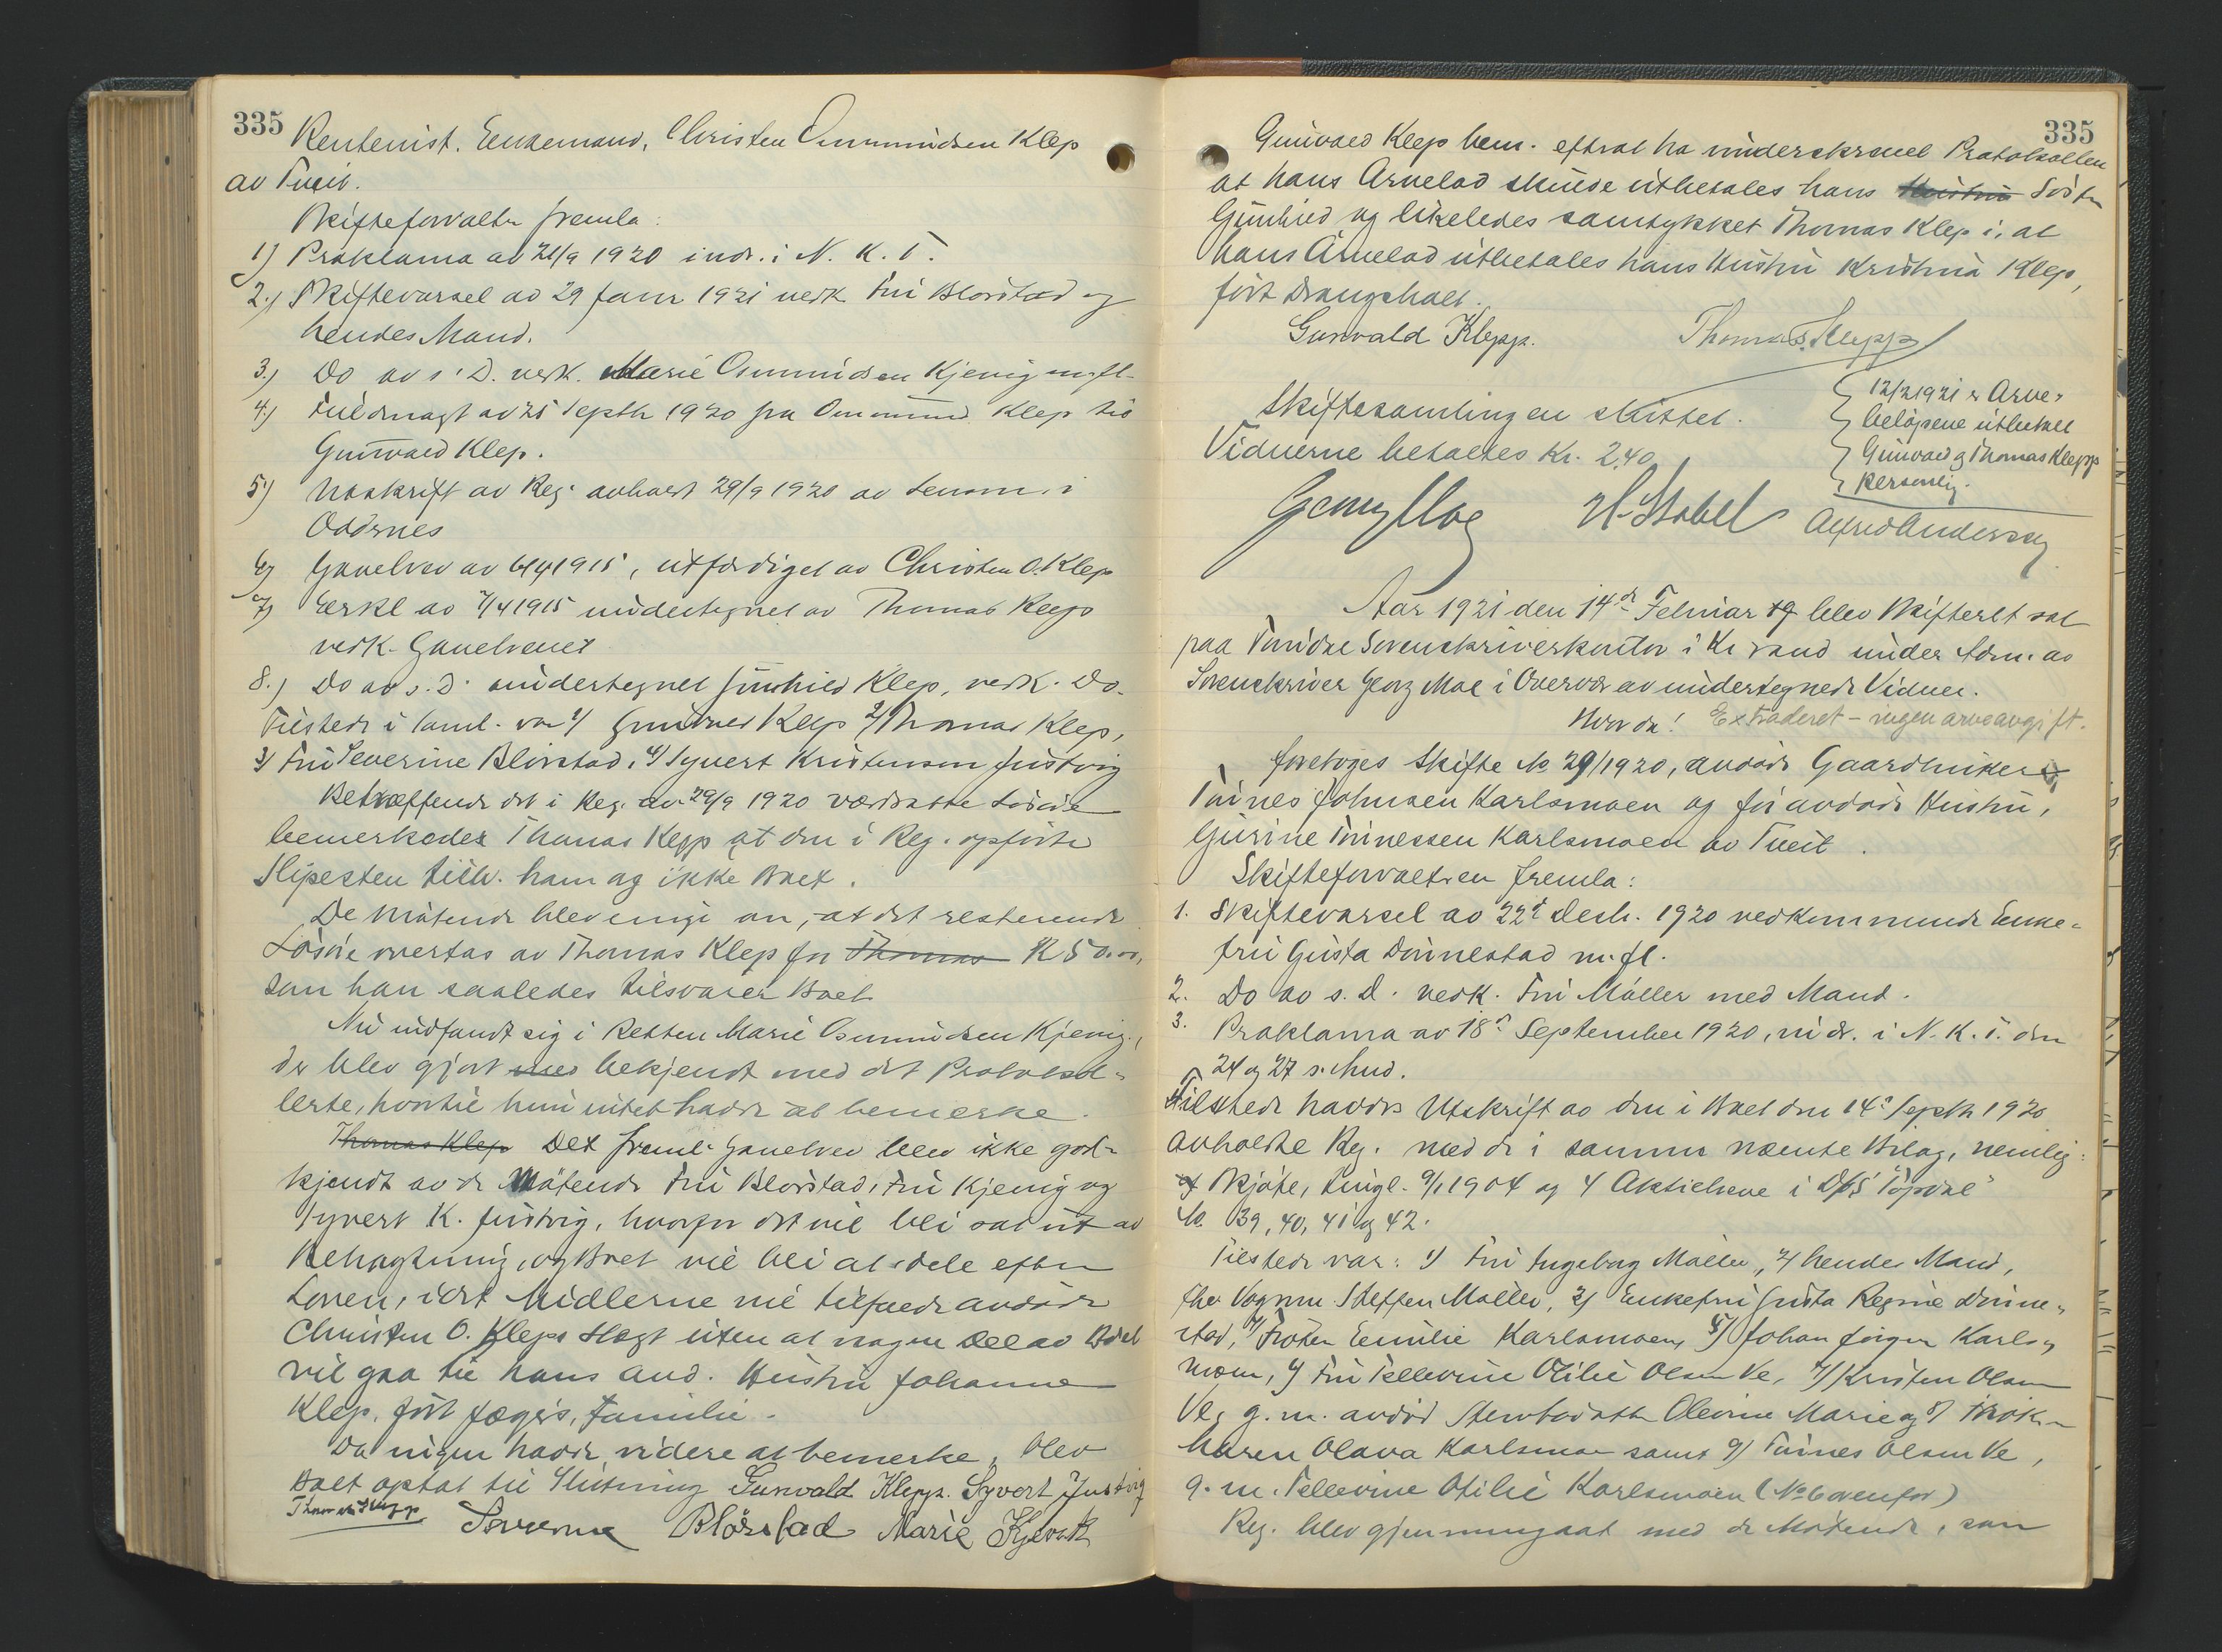 335
Rentenist. Enkemand, Christen Osmundsen Klep
av Tveit.
Skifteforvalter fremla:
1) Proklama av 21/9 1920 indr. i N. K. T.
2.) Skiftevarsel av 29 Janr 1921 vedk. Fru Blörstad og
hendes Mand.
3.) Do av s. D. vedk. Marie Osmundsen Kjevig m. fl.
4.) Fuldmagt av 25 Septbr 1920 fra Osmund Klep til
Gunvald Klep.
5.) Utskrift av Reg. avholdt 29/9 1920 av Lensm. i
Oddernes
6) Gavebrev av 1915, utfærdiget av Christen O. Klep
og 7) Erkl av 7/4 1915 undertegnet av Thomas Klep
vedk. Gavebrevet
8.) Do av s. D. undertegnet Gunhild Klep, vedk. Do.
Tilstede i Saml. var 1) Gunvald Klep 2) Thomas Klep,
3) Fru Severine Blörstad, 4) Syvert Kristensen Justvig
Betræffende det i Reg. av 29/9 1920 værdsatte Lösöre
bemerkedes Thomas Klepp at den i Reg. opförte
Slipesten tilh. ham og ikke Boet.
De Mötende blev enige om, at det resterende
Lösöre overtas av Thomas Klep for Thomas K 50.00,
som han saaledes tilsvarer Boet.
Nu indfandt sig i Retten Marie Osmundsen Kjevig,
der blev gjort med bekjendt med det Protokol-
lerte, hvortil hun intet hadde at bemerke.
Thomas Klep Det freml. Gavebrev blev ikke god-
kjendt av de Mötende Fru Blörstad, Fru Kjevig og
Syvert K. Justvig, hvorfor det vil bli sat ut av
Betragtning, og Boet vil bli at dele efter
Loven, idet Midlerne vil tilfalde avdöde
Christen O. Kleps Slegt uten at nogen Del av Boet
vil gaa til hans avd. Hustru Johanne
Klep, föt Jæger's, Familie.
Da ingen hadde videre at bemerke, blev
Boet optat til Slutning Gunvald Klepp. Syvert Justvig
Thomas Klepp Severine Blörstad Marie Kjevik
335
Gunvald Klep bem. efterat ha underskrevet Protokollen
at hans Arvelod skulde utbetales hans Hustru Söster
Gunhild og likeledes samtykket Thomas Klep i, at
hans Arvelod utbetales hans Hustru Kristina Klep,
föt Drangsholt.
Gunvald Klepp. Thomas Klepp
Skiftesamlingen sluttet.
Vidnerne betaltes Kr. 2,40
12/2 1921 er Arve-
belöpene utbetalt
Gunvald og Thomas Klepp
personlig.
Georg Moe H. Stabel Alfred Andersen
Aar 1921 den 14de Februar 19 blev Skifteret sat
paa Torridal Sorenskriverkontor i Kr sand under Adm. av
Sorenskriver Georg Moe i Overvær av undertegnede Vidner.
Hvorda! Extraderet - ingen arveavgift.
foretoges Skifte No 29/1920, avdöde Gaardbruker
Tönnes Johnsen Karlsmoen og för avdöde Hustru,
Gurine Tönnessen Karlsmoen av Tveit.
Skifteforvalteren fremla:
1. Skiftevarsel av 22d Decb. 1920 vedkommende Enke-
fru Gusta Dönnestad m. fl.
2. Do av s. D. vedk. Fru Möller med Mand.
3. Proklama av 18d September 1920, indr. i N. K. T. den
24 og 27 s. Mnd.
Tilstede havdes Utskrift av den i Boet den 14d Septbr 1920
avholdte Reg. med de i samme nævnte Bilag, nemlig:
Skjöte, tingl. 9/1 1904 og 4 Aktiebreve i D/S "Topdal"
No. 39, 40, 41 og 42.
Tilstede var: 1) Fru Ingeborg Möller, 2) hendes Mand,
Steffen Möller, 3) Enkefru Gusta Regine Dönne-
stad, 4) Fröken Emilie Karlsmoen, 5) Johan Jörgen Karls-
moen, 6) Fru Tellevine Otilie Olsen Ve, 7) Kristen Olsen
Ve, g. m. avdöd Olevine Marie og 8) Frök.
Maren Olava Karlsmoen samt 9) Tönnes Olsen Ve,
g. m. Tellevine Otilie Karlsmoen (No 6 ovenfor)
Reg. blev gjennemgaat med de Mötende, som